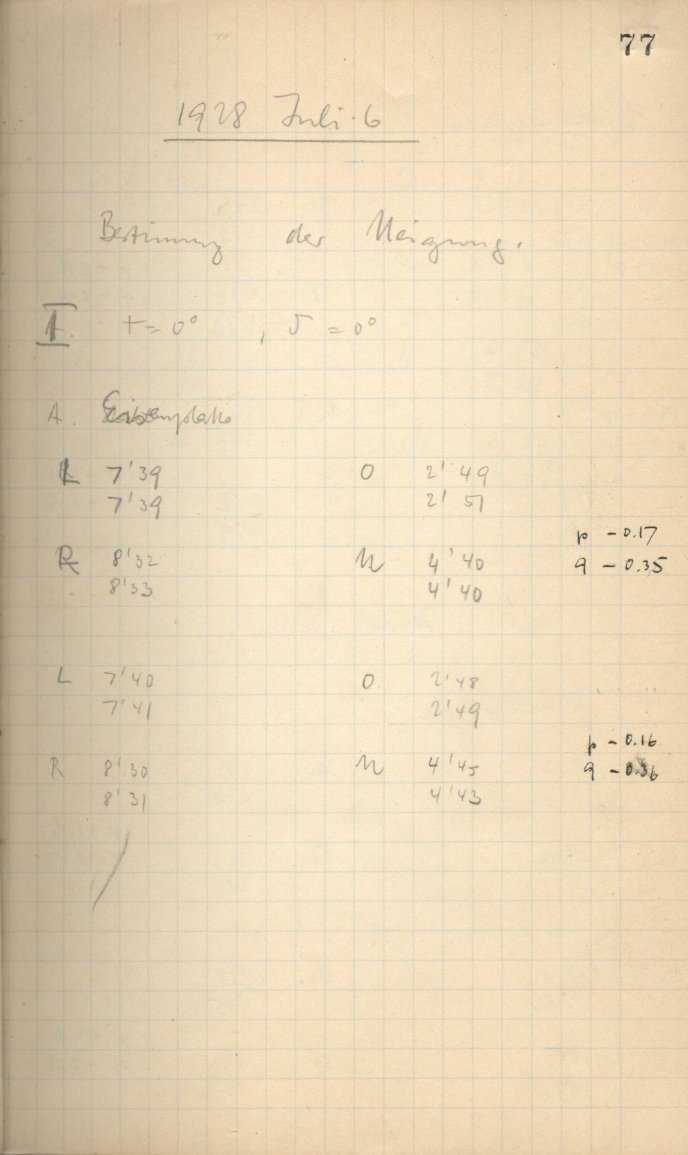 77
1928 Juli 6
Bestimmung der Neigung.
I. t = 0° , δ = 0°
A. Eisenplatte
L 7'39 O 2'49
7'39 2'51
p -0.17
R 8'32 U 4'40 q -0.35
8'33 4'40
L 7'40 O 2'48
7'41 2'49
p -0.16
R 8'30 U 4'45 q -0.36
8'31 4'43